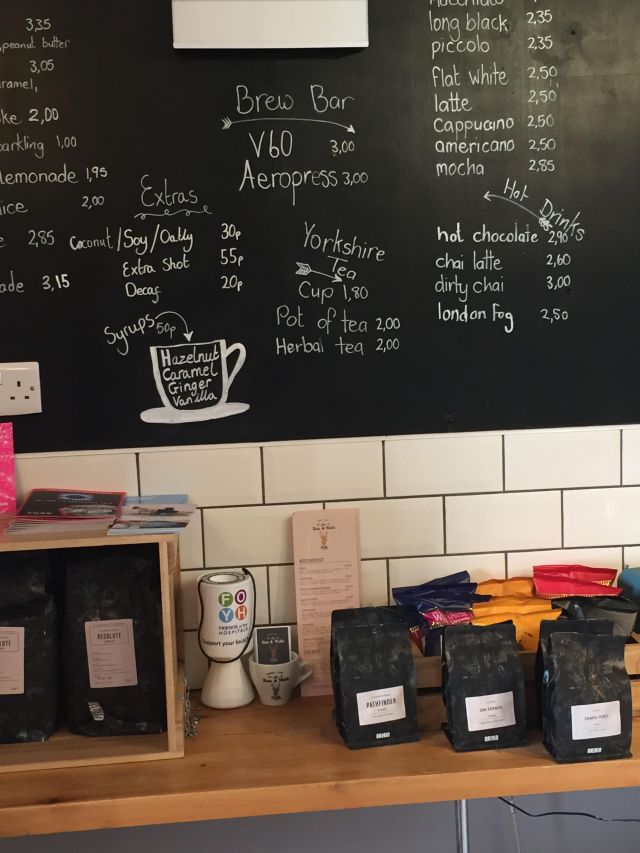 3,35
, peanut butter
3,05
aramel,
ke 2,00
arkling 1,00
lemonade 1,95
ice 2,00
e 2,85
ade 3,15
Extras
Coconut/Soy/Oatly 30p
Extra Shot 55p
Decaf 20p
Syrups 50p
Hazelnut
Caramel
Ginger
Vanilla
Brew Bar
V60 3,00
Aeropress 3,00
Yorkshire
Tea
Cup 1,80
Pot of tea 2,00
Herbal tea 2,00
long black 2,35
piccolo 2,35
flat white 2,50
latte 2,50
Cappucino 2,50
americano 2,50
mocha 2,85
Hot Drinks
hot chocolate 2,90
chai latte 2,60
dirty chai 3,00
london Fog 2,50
RESOLUTE
FOYH
FRIENDS of York
HOSPITALS
Support your local
BREAKFAST
PATHFINDER
ORIGIN
SAN FERMIN
ORIGIN
ORIGIN